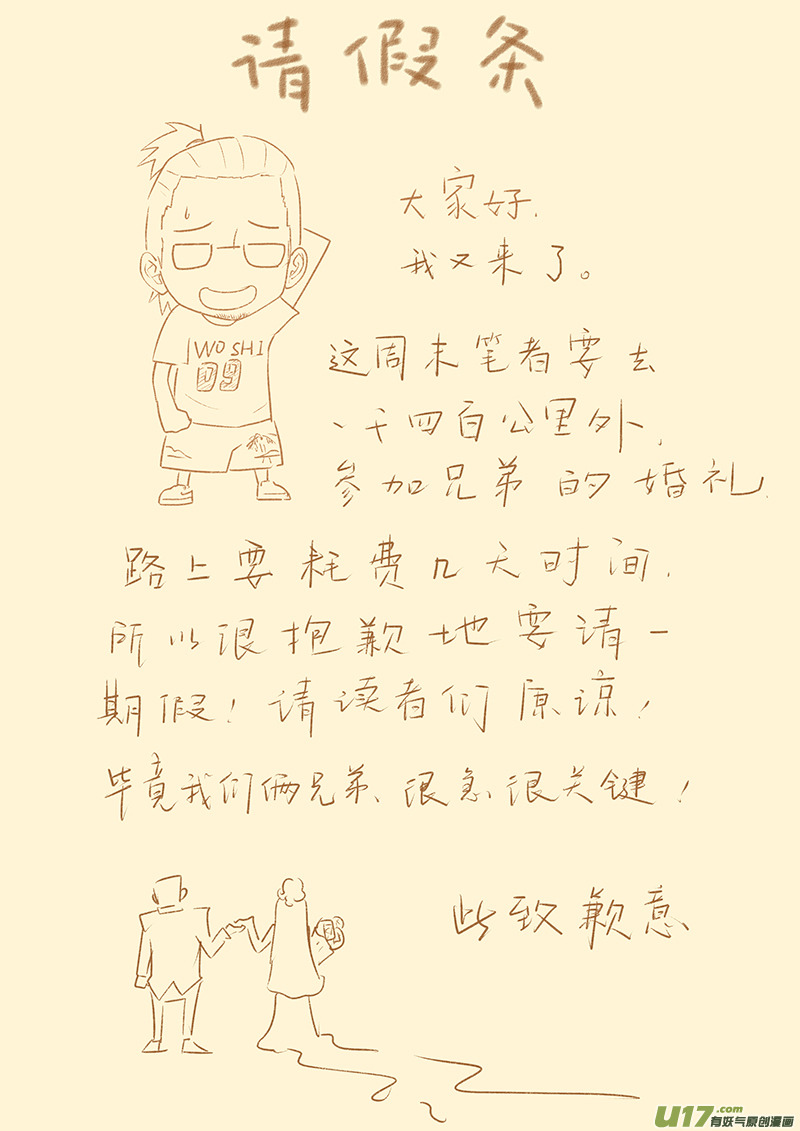 请假条
大家好,
我又来了。
WO SHI
09
这周末笔者要去
一千四百公里外,
参加兄弟的婚礼,
路上要耗费几天时间,
所以很抱歉地要请一
期假!请读者们原谅!
毕竟我们俩兄弟、很急很关键!
此致歉意
U17.com
有妖气原创漫画